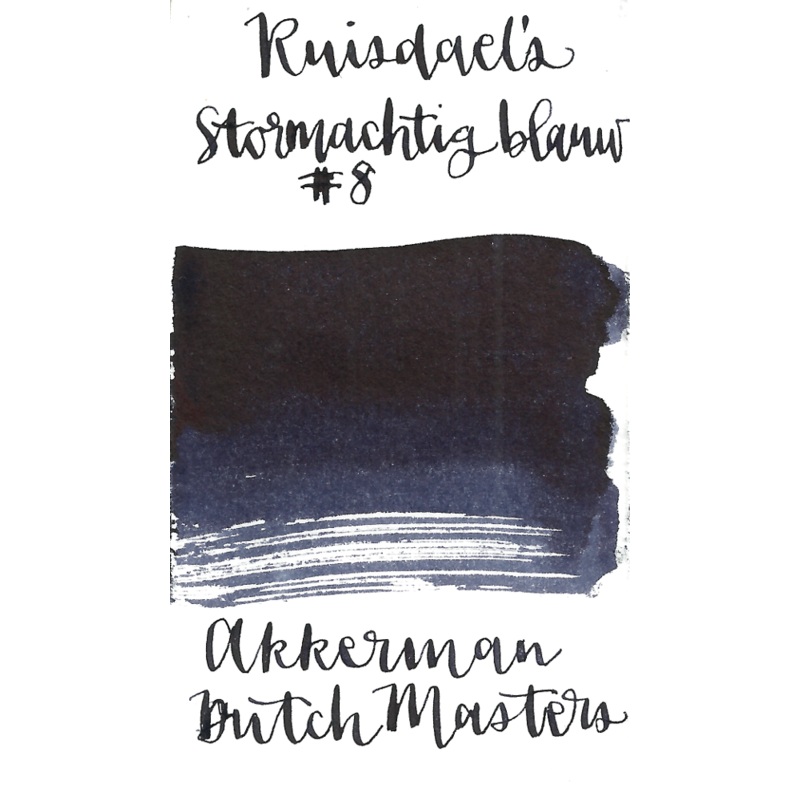 Ruisdael's
Stormachtig blauw
#8
Akkerman
Dutch Masters